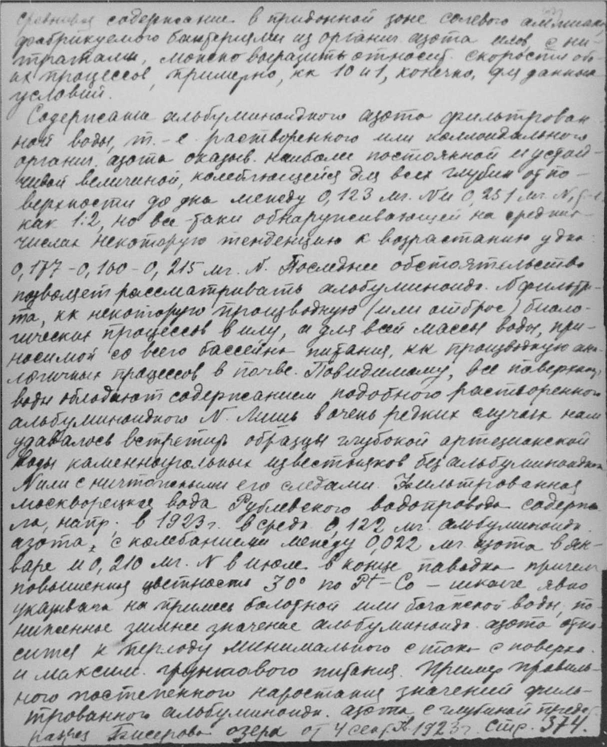 сравнивая содержание в придонной зоне солевого аммиака,
фабрикуемого бактериями из органич. азота илов, с ни-
тратами, можно выразить относит. скорости об-
их процессов, примерно, кк 10 и 1, конечно, для данных
условий.
Содержание альбуминоидного азота фильтрован-
ной воды, т.-е. растворенного или коллоидального
органич. азота оказыв. наиболее постоянной и устой-
чивой величиной, колеблющейся для всех глубин от по-
верхности до дна между 0,123 мг. N и 0,251 мг. N,
как 1:2, но все-таки обнаруживающей на средних
числах некоторую тенденцию к возрастанию у дна:
0,177-0,180-0,215 мг. N. Последнее обстоятельство
позволяет рассматривать альбуминоидн. N фильтра-
та, кк некоторую производную (или отброс) биоло-
гических процессов в илу, а для всей массы воды, при-
носимой со всего бассейна питания, кк производную ана-
логичных процессов в почве. Повидимому, все поверхност.
воды обладают содержанием подобного растворенного
альбуминоидного N. Лишь в очень редких случаях нам
удавалось встретить образцы глубокой артезианской
воды каменноугольных известняков без альбуминоидного
N или с ничтожными его следами. Фильтрованная
москворецкая вода Рублевского водопровода содержа-
ла, напр. в 1923 г. в средн. 0,122 мг. альбуминоидн.
азота, с колебаниями между 0,022 мг азота в ян-
варе и 0,210 мг. N в июле в конце паводка причем
повышенная цветность 30° по Pt-Co — явно
указывала на примесь болотной или воды, по-
ниженное зимнее значение альбуминоидн. азота отно-
сится к периоду минимального стока с поверхн.
и максим. грунтового питания. Пример правиль-
ного постепенного нарастания значений филь-
трованного альбуминоидн. азота с глубиной
разрез Бисерова озера от 1923 г. Стр. 374.